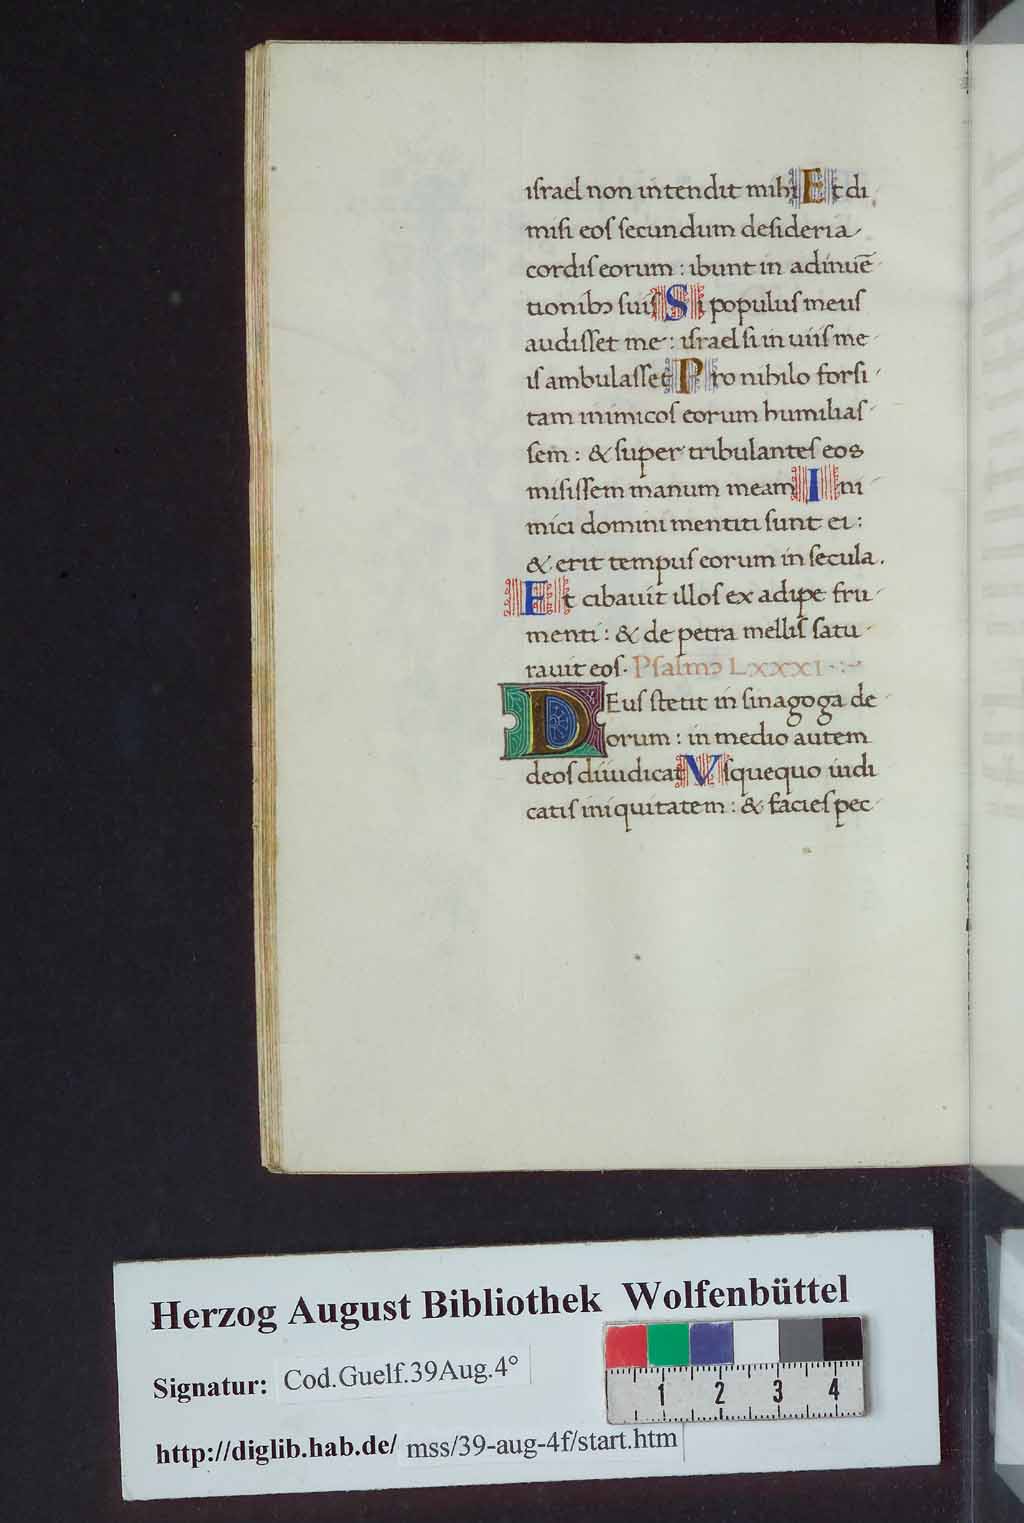 iſrael non intendit mihi Et di
miſi eoſ ſecundum deſideria
cordiſ eorum : ibunt in adinuē
tionibꝫ ſuiſ Si populuſ meuſ
audiſſet me : iſrael ſi in uiiſ me
iſ ambulaſſet Pro nihilo forſi
tam inimicoſ eorum humiliaſ
ſem : & ſuper tribulanteſ eos
miſiſſem manum meam Ini
mici domini mentiti ſunt ei :
& erit tempuſ eorum in ſecula.
Et cibauit illoſ ex adipe fru
menti : & de petra melliſ ſatu
rauit eoſ. Pſalmꝰ LXXXI
DEuſ ſtetit in ſinagoga de
orum : in medio autem
deoſ diiudicat Vſquequo iudi
catiſ iniquitatem : & facieſ pec
Herzog August Bibliothek Wolfenbüttel
Signatur: Cod.Guelf.39Aug.4°
1 2 3 4
http://diglib.hab.de/ mss/39-aug-4f/start.htm